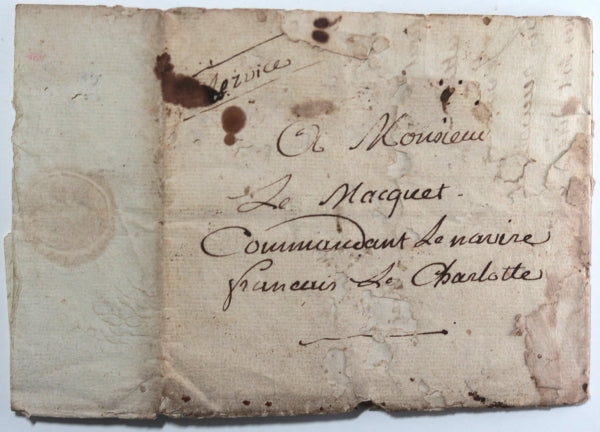 Service
A Monsieur
Le Macquet
Commandant Le navire
francais Le Charlotte